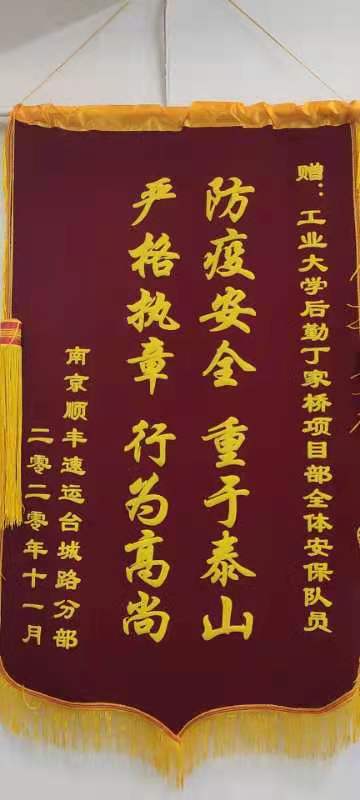 赠：工业大学后勤丁家桥项目部全体安保队员
防疫安全 重于泰山
严格执章 行为高尚
南京顺丰速运台城路分部
二零二零年十一月